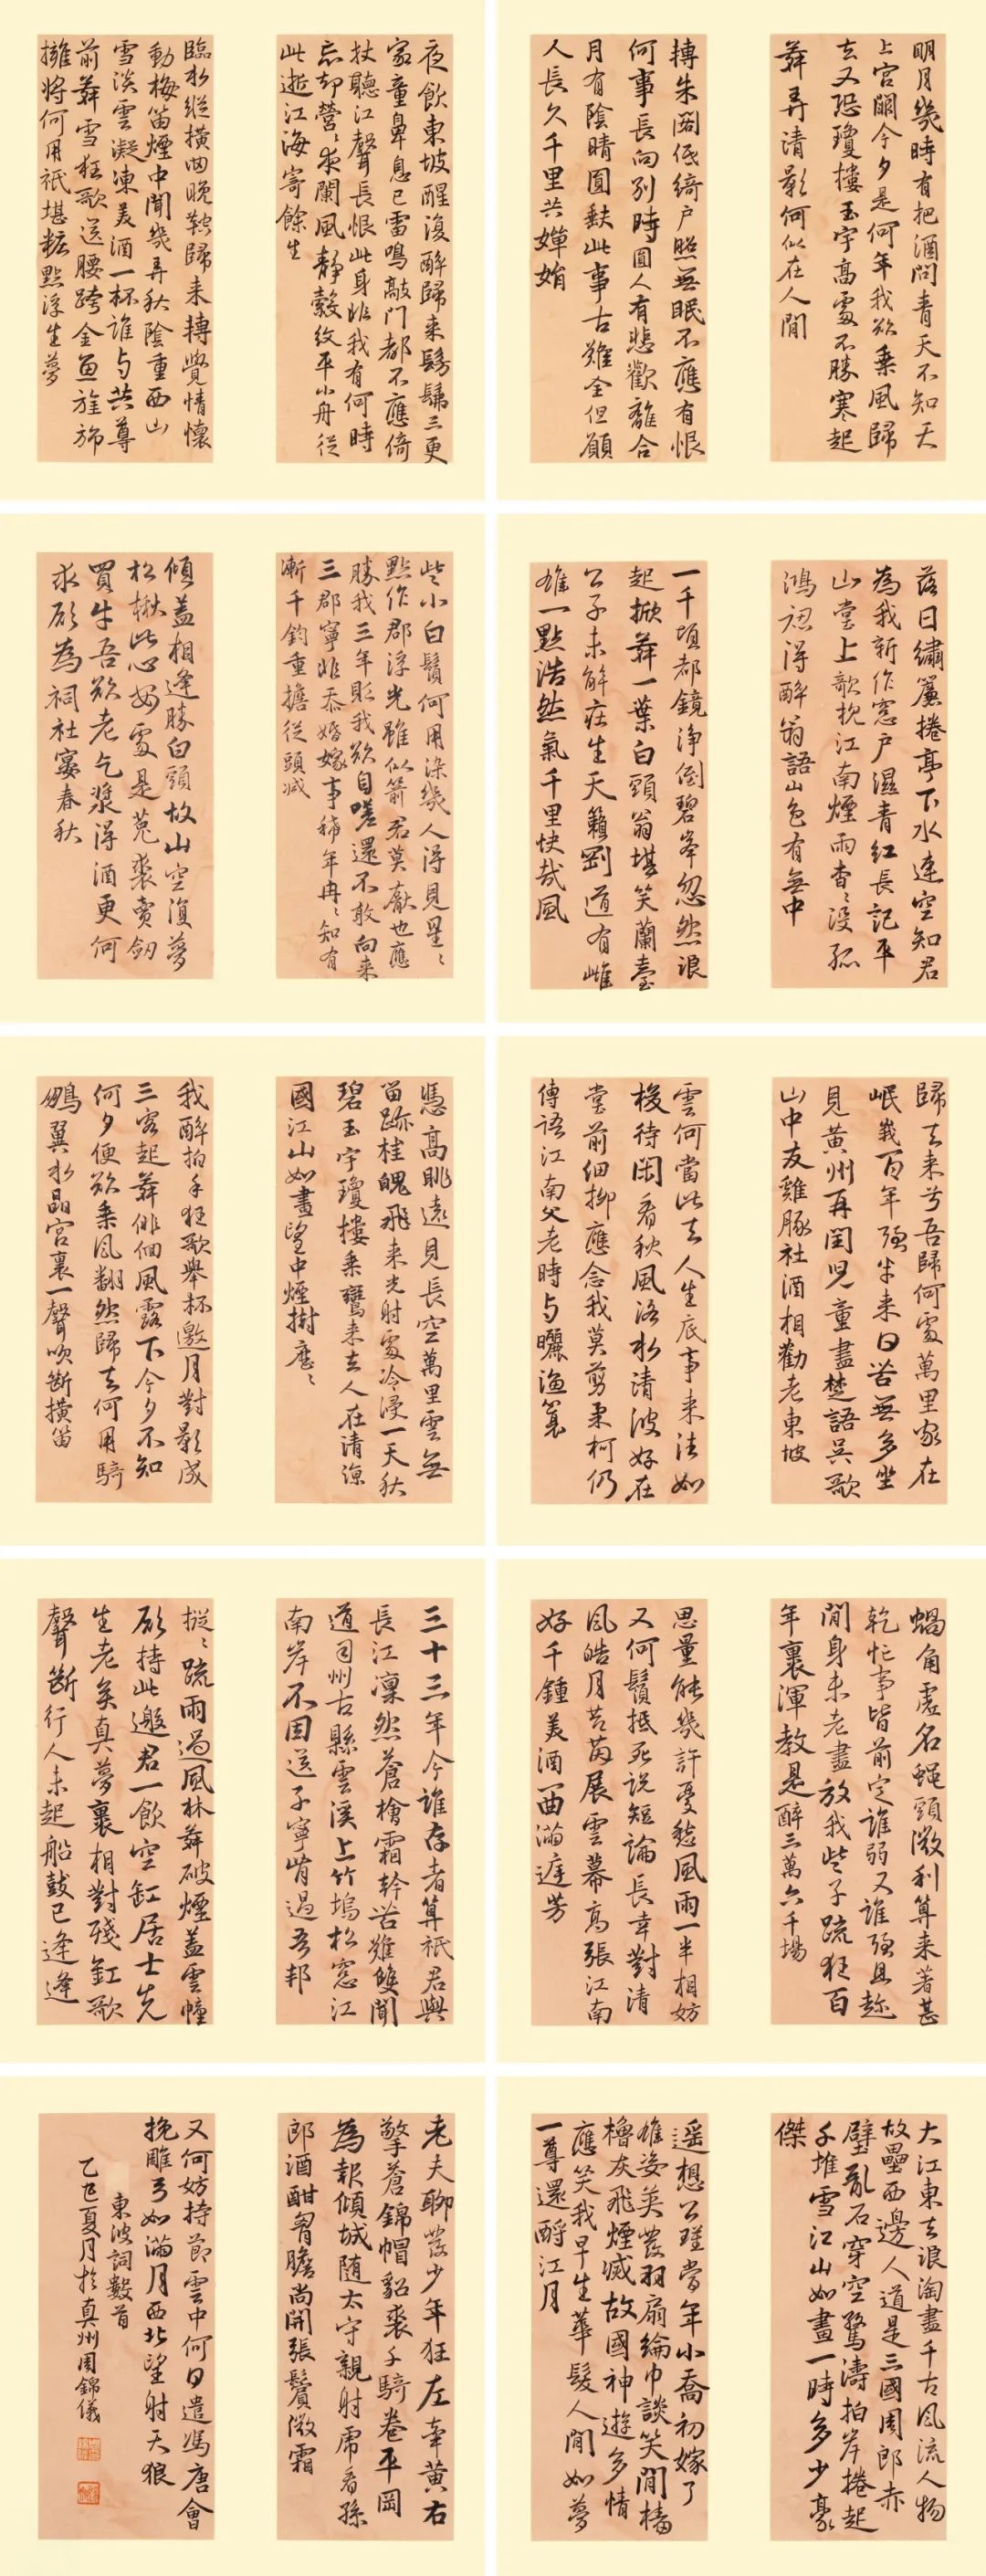 明月幾時有把酒問青天不知天
上宮闕今夕是何年我欲乘風歸
去又恐瓊樓玉宇高處不勝寒起
舞弄清影何似在人間
轉朱閣低綺户照無眠不應有恨
何事長向別時圓人有悲歡離合
月有陰晴圓缺此事古難全但願
人長久千里共嬋娟
夜飲東坡醒復醉歸來髣髴三更
家童鼻息已雷鳴敲門都不應倚
杖聽江聲長恨此身非我有何時
忘卻營〻夜闌風靜縠紋平小舟從
此逝江海寄餘生
臨水縱橫回晚鞚歸来轉覺情懷
動梅笛煙中聞幾弄秋陰重西山
雪淡雲凝凍美酒一杯誰与共尊
前舞雪狂歌送腰跨金魚旌旆
擁將何用祇堪粧點浮生夢
落日繡簾捲亭下水連空知君
為我新作窓户濕青紅長記平
山堂上欹枕江南煙雨杳〻没孤
鴻認得醉翁語山色有無中
一千頃都鏡淨倒碧峯忽然浪
起掀舞一葉白頭翁堪笑蘭臺
公子未解莊生天籟剛道有雌
雄一點浩然氣千里快哉風
些小白鬚何用染幾人得見星〻
點作郡浮光雖似箭君莫厭也應
勝我三年貶我欲自嗟還不敢向来
三郡寧非忝婚嫁事稀年冉〻知有
漸千鈞重擔從頭減
傾蓋相逢勝白頭故山空復夢
松楸此心安處是菟裘賣劒
買牛吾欲老乞漿得酒更何
求願為祠社宴春秋
歸去来兮吾歸何處萬里家在
岷峩百年强半来日苦無多坐
見黃州再閏兒童盡楚語吳歌
山中友雞豚社酒相勸老東坡
雲何當此去人生底事来往如
梭待閑看秋風洛水清波好在
堂前細柳應念我莫剪柔柯仍
傳語江南父老時与曬漁蓑
憑高眺遠見長空萬里雲無
留跡桂魄飛来光射處冷浸一天秋
碧玉宇瓊樓乘鸞来去人在清涼
國江山如畫望中煙樹歷〻
我醉拍手狂歌舉杯邀月對影成
三客起舞徘徊風露下今夕不知
何夕便欲乘風翻然歸去何用騎
鵬翼水晶宮裏一聲吹斷橫笛
蝸角虛名蠅頭微利算来著甚
乾忙事皆前定誰弱又誰强且趂
閒身未老盡放我些子疏狂百
年裏渾教是醉三萬六千場
思量能幾許憂愁風雨一半相妨
又何鬚抵死説短論長幸對清
風皓月苔茵展雲幕高張江南
好千鍾美酒一曲滿庭芳
三十三年今誰存者算祇君與
長江凜然蒼檜霜幹苦難雙聞
道司州古縣雲溪上竹塢松窓江
南岸不因送子寧肯過吾邦
摐〻疏雨過風林舞破煙蓋雲幢
願持此邀君一飲空缸居士先
生老矣真夢裏相對殘釭歌
聲斷行人未起船鼓已逢逢
大江東去浪淘盡千古風流人物
故壘西邊人道是三國周郎赤
壁亂石穿空驚濤拍岸捲起
千堆雪江山如畫一時多少豪
傑
遥想公瑾當年小喬初嫁了
雄姿英發羽扇綸巾談笑間檣
櫓灰飛煙滅故國神遊多情
應笑我早生華髮人間如夢
一尊還酹江月
老夫聊發少年狂左牽黃右
擎蒼錦帽貂裘千騎卷平岡
為報傾城随太守親射虎看孫
郎酒酣胷膽尚開張鬢微霜
又何妨持節雲中何日遣馮唐會
挽雕弓如滿月西北望射天狼
東波詞數首
乙巳夏月於真州周錦儀